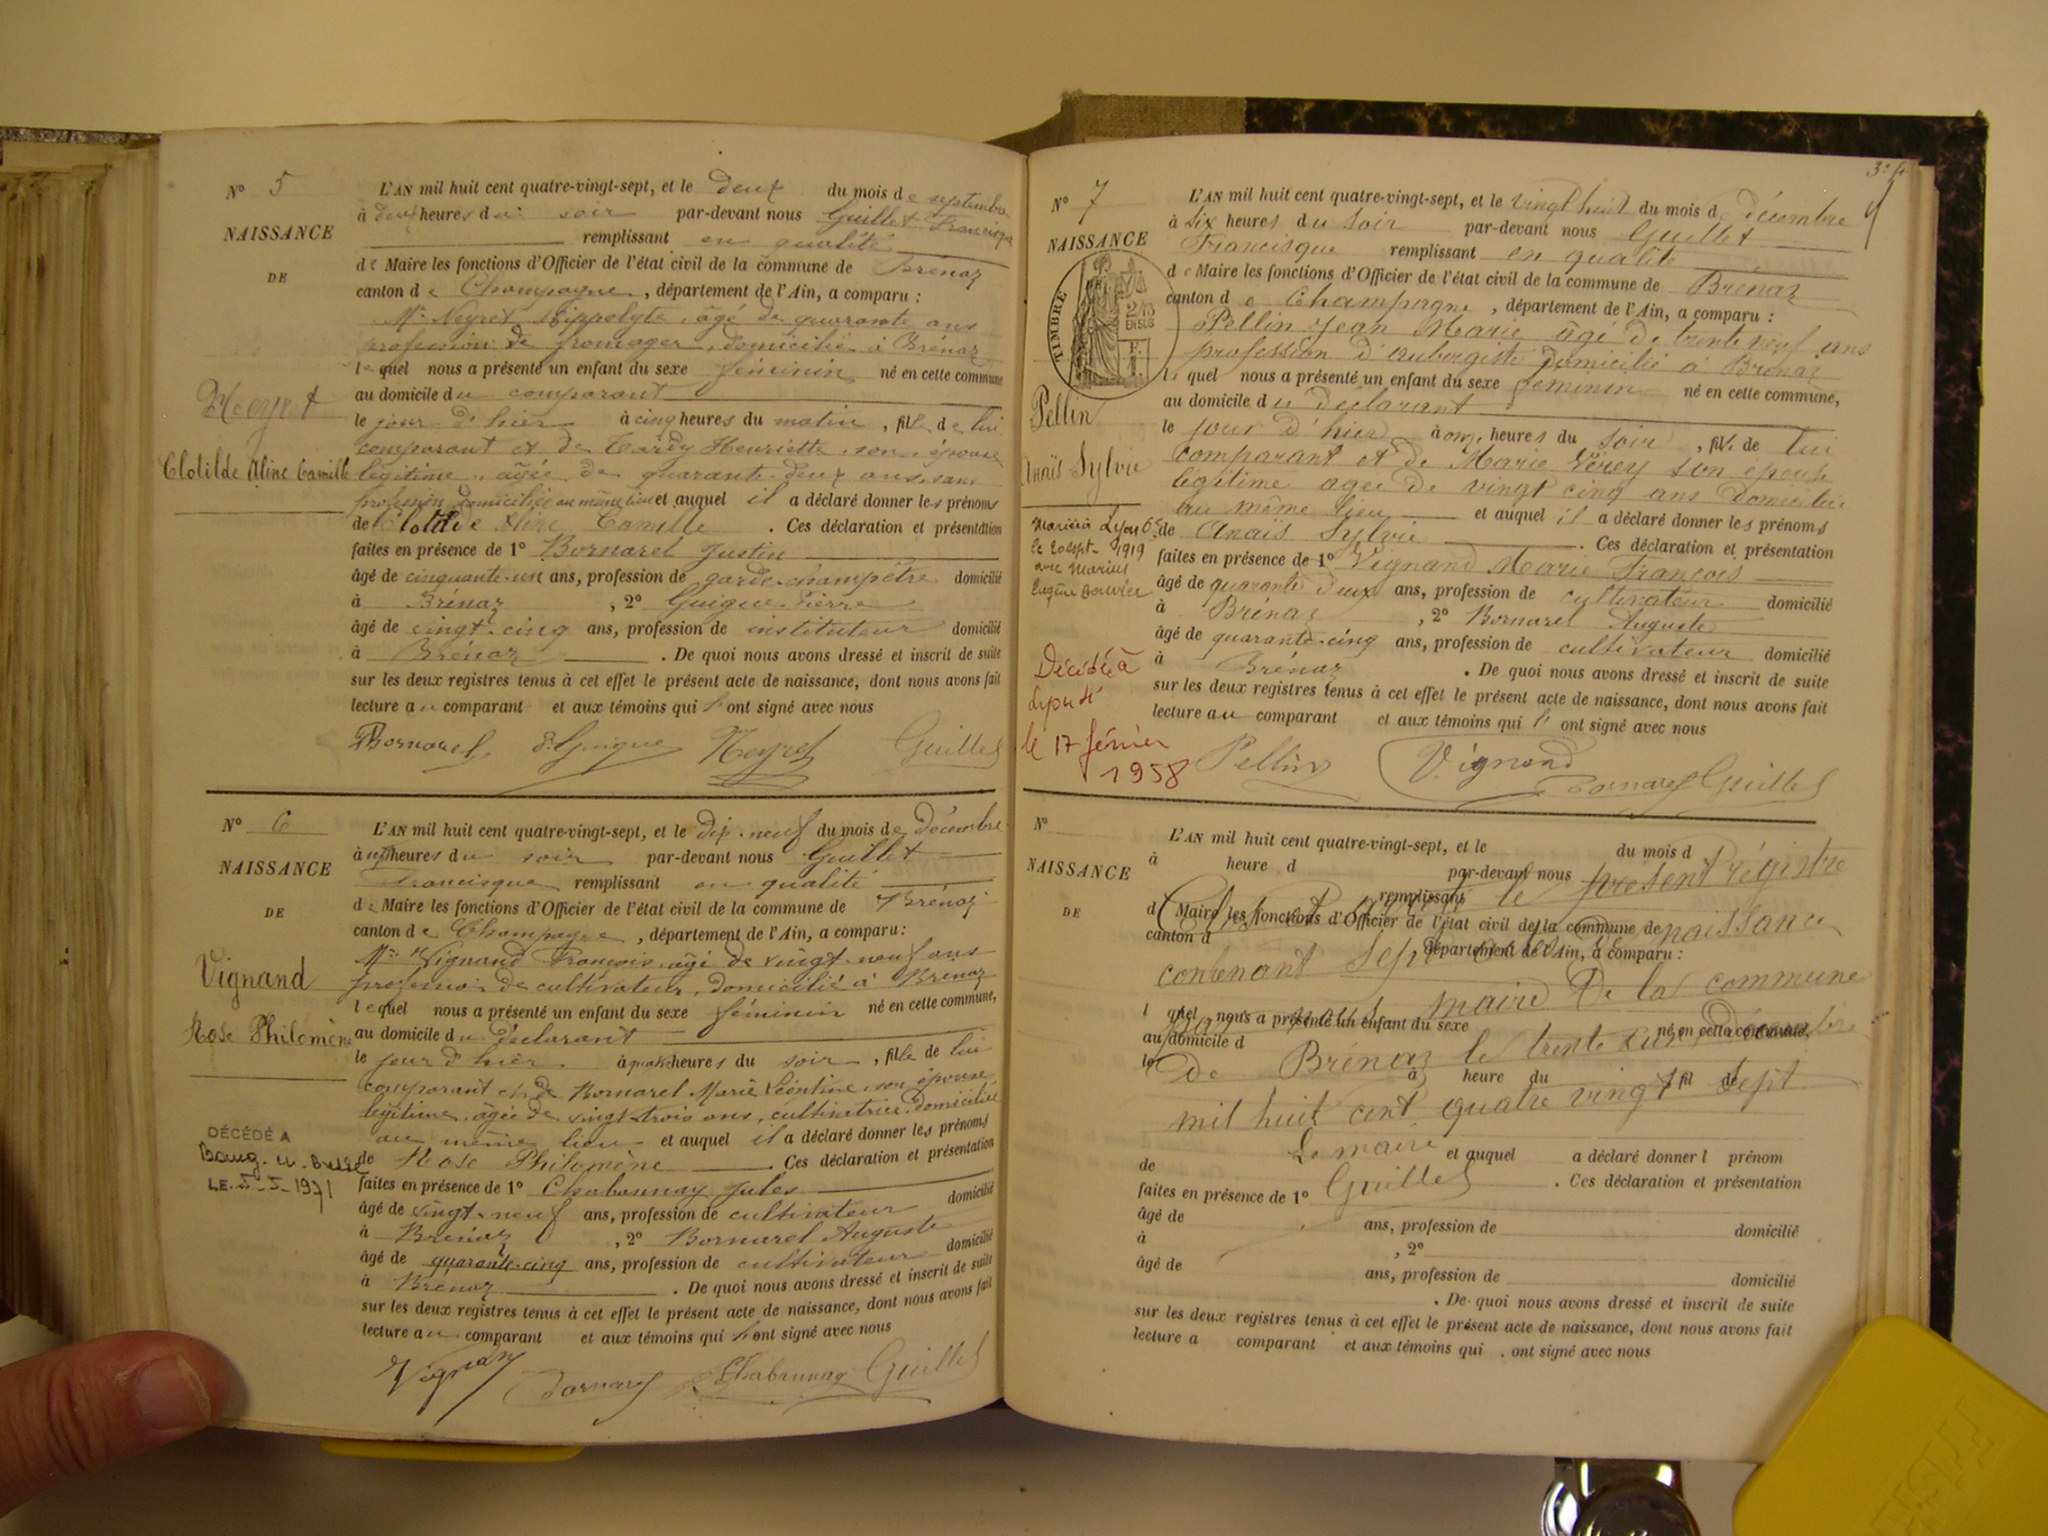 N° 5
NAISSANCE
DE
Neyret
Clotilde Aline Camille
L'AN mil huit cent quatre-vingt-sept, et le deux du mois de septembre
à deux heures du soir par-devant nous Guillet Francisque
remplissant en qualité
de Maire les fonctions d'Officier de l'état civil de la commune de Brénaz
canton de Champagne, département de l'Ain, a comparu :
Mr Neyret Hippolyte, âgé de quarante ans
profession de fromager, domicilié à Brénaz
lequel nous a présenté un enfant du sexe féminin né en cette commune
au domicile du comparant
le jour d'hier à cinq heures du matin, fille de lui
comparant et de Henriette son épouse
légitime, âgée de quarante-deux ans, sans
profession domiciliée au même lieu et auquel il a déclaré donner les prénoms
de Clotilde Aline Camille. Ces déclaration et présentation
faites en présence de 1° Bornarel Justin
âgé de cinquante-un ans, profession de garde-champêtre domicilié
à Brénaz, 2° Guigue Pierre
âgé de vingt-cinq ans, profession de instituteur domicilié
à Brénaz. De quoi nous avons dressé et inscrit de suite
sur les deux registres tenus à cet effet le présent acte de naissance, dont nous avons fait
lecture au comparant et aux témoins qui l'ont signé avec nous
Bornarel P. Guigue Neyret Guillet
N° 6
NAISSANCE
DE
Vignand
Rose Philomène
DÉCÉDÉ A
Bourg-en-Bresse
LE 5-5-1971
L'AN mil huit cent quatre-vingt-sept, et le dix-neuf du mois de décembre
à heures du soir par-devant nous Guillet
Francisque remplissant en qualité
de Maire les fonctions d'Officier de l'état civil de la commune de Brénaz
canton de Champagne, département de l'Ain, a comparu :
Vignand François âgé de vingt-neuf ans
profession de cultivateur, domicilié à Brénaz
lequel nous a présenté un enfant du sexe féminin né en cette commune,
au domicile du déclarant
le jour d'hier à quatre heures du soir, fille de lui
comparant et de Bornarel Marie Léontine, son épouse
légitime, âgée de vingt-trois ans, cultivatrice, domiciliée
au même lieu et auquel il a déclaré donner les prénoms
de Rose Philomène. Ces déclaration et présentation
faites en présence de 1° Chabaunay Jules
âgé de vingt-neuf ans, profession de cultivateur domicilié
à Brénaz, 2° Bornarel Auguste
âgé de quarante-cinq ans, profession de cultivateur domicilié
à Brénaz. De quoi nous avons dressé et inscrit de suite
sur les deux registres tenus à cet effet le présent acte de naissance, dont nous avons fait
lecture au comparant et aux témoins qui l'ont signé avec nous
Vignand Bornarel Guillet
N° 7
NAISSANCE
TIMBRE
Pellin
Anaïs Sylvie
Mariée à Lyon 6e
le 20 sept- 1919
avec Marius
Eugène
Décédée à
le 17 février
1958
L'AN mil huit cent quatre-vingt-sept, et le vingt huit du mois de décembre
à six heures du soir par-devant nous Guillet
Francisque remplissant en qualité
de Maire les fonctions d'Officier de l'état civil de la commune de Brénaz
canton de Champagne, département de l'Ain, a comparu :
Pellin Jean Marie âgé de trente neuf ans
profession d'aubergiste domicilié à Brénaz
lequel nous a présenté un enfant du sexe féminin né en cette commune,
au domicile du déclarant
le jour d'hier à onze heures du soir, fille de lui
comparant et de Marie Férey son épouse
légitime agée de vingt cinq ans domiciliée
au même lieu et auquel il a déclaré donner les prénoms
de Anaïs Sylvie. Ces déclaration et présentation
faites en présence de 1° Vignand Marie François
âgé de quarante deux ans, profession de cultivateur domicilié
à Brénaz, 2° Bornarel Auguste
âgé de quarante-cinq ans, profession de cultivateur domicilié
à Brénaz. De quoi nous avons dressé et inscrit de suite
sur les deux registres tenus à cet effet le présent acte de naissance, dont nous avons fait
lecture au comparant et aux témoins qui l'ont signé avec nous
Pellin Vignand
Bornarel Guillet
N°
NAISSANCE
DE
L'AN mil huit cent quatre-vingt-sept, et le du mois d
à heure d par-devant nous
remplissant
Clos et arrêté le présent régistre
d Maire les fonctions d'Officier de l'état civil de la commune de
naissance
canton d département de l'Ain, a comparu :
contenant sept actes
maire de la commune
l quel nous a présenté un enfant du sexe né en cette commune,
au domicile d
De Brénaz le trente un Décembre
le à heure du fil de
mil huit cent quatre vingt sept
Le maire
et auquel a déclaré donner l prénom
de Guillet. Ces déclaration et présentation
faites en présence de 1°
âgé de ans, profession de domicilié
à , 2°
âgé de ans, profession de domicilié
. De quoi nous avons dressé et inscrit de suite
sur les deux registres tenus à cet effet le présent acte de naissance, dont nous avons fait
lecture a comparant et aux témoins qui ont signé avec nous